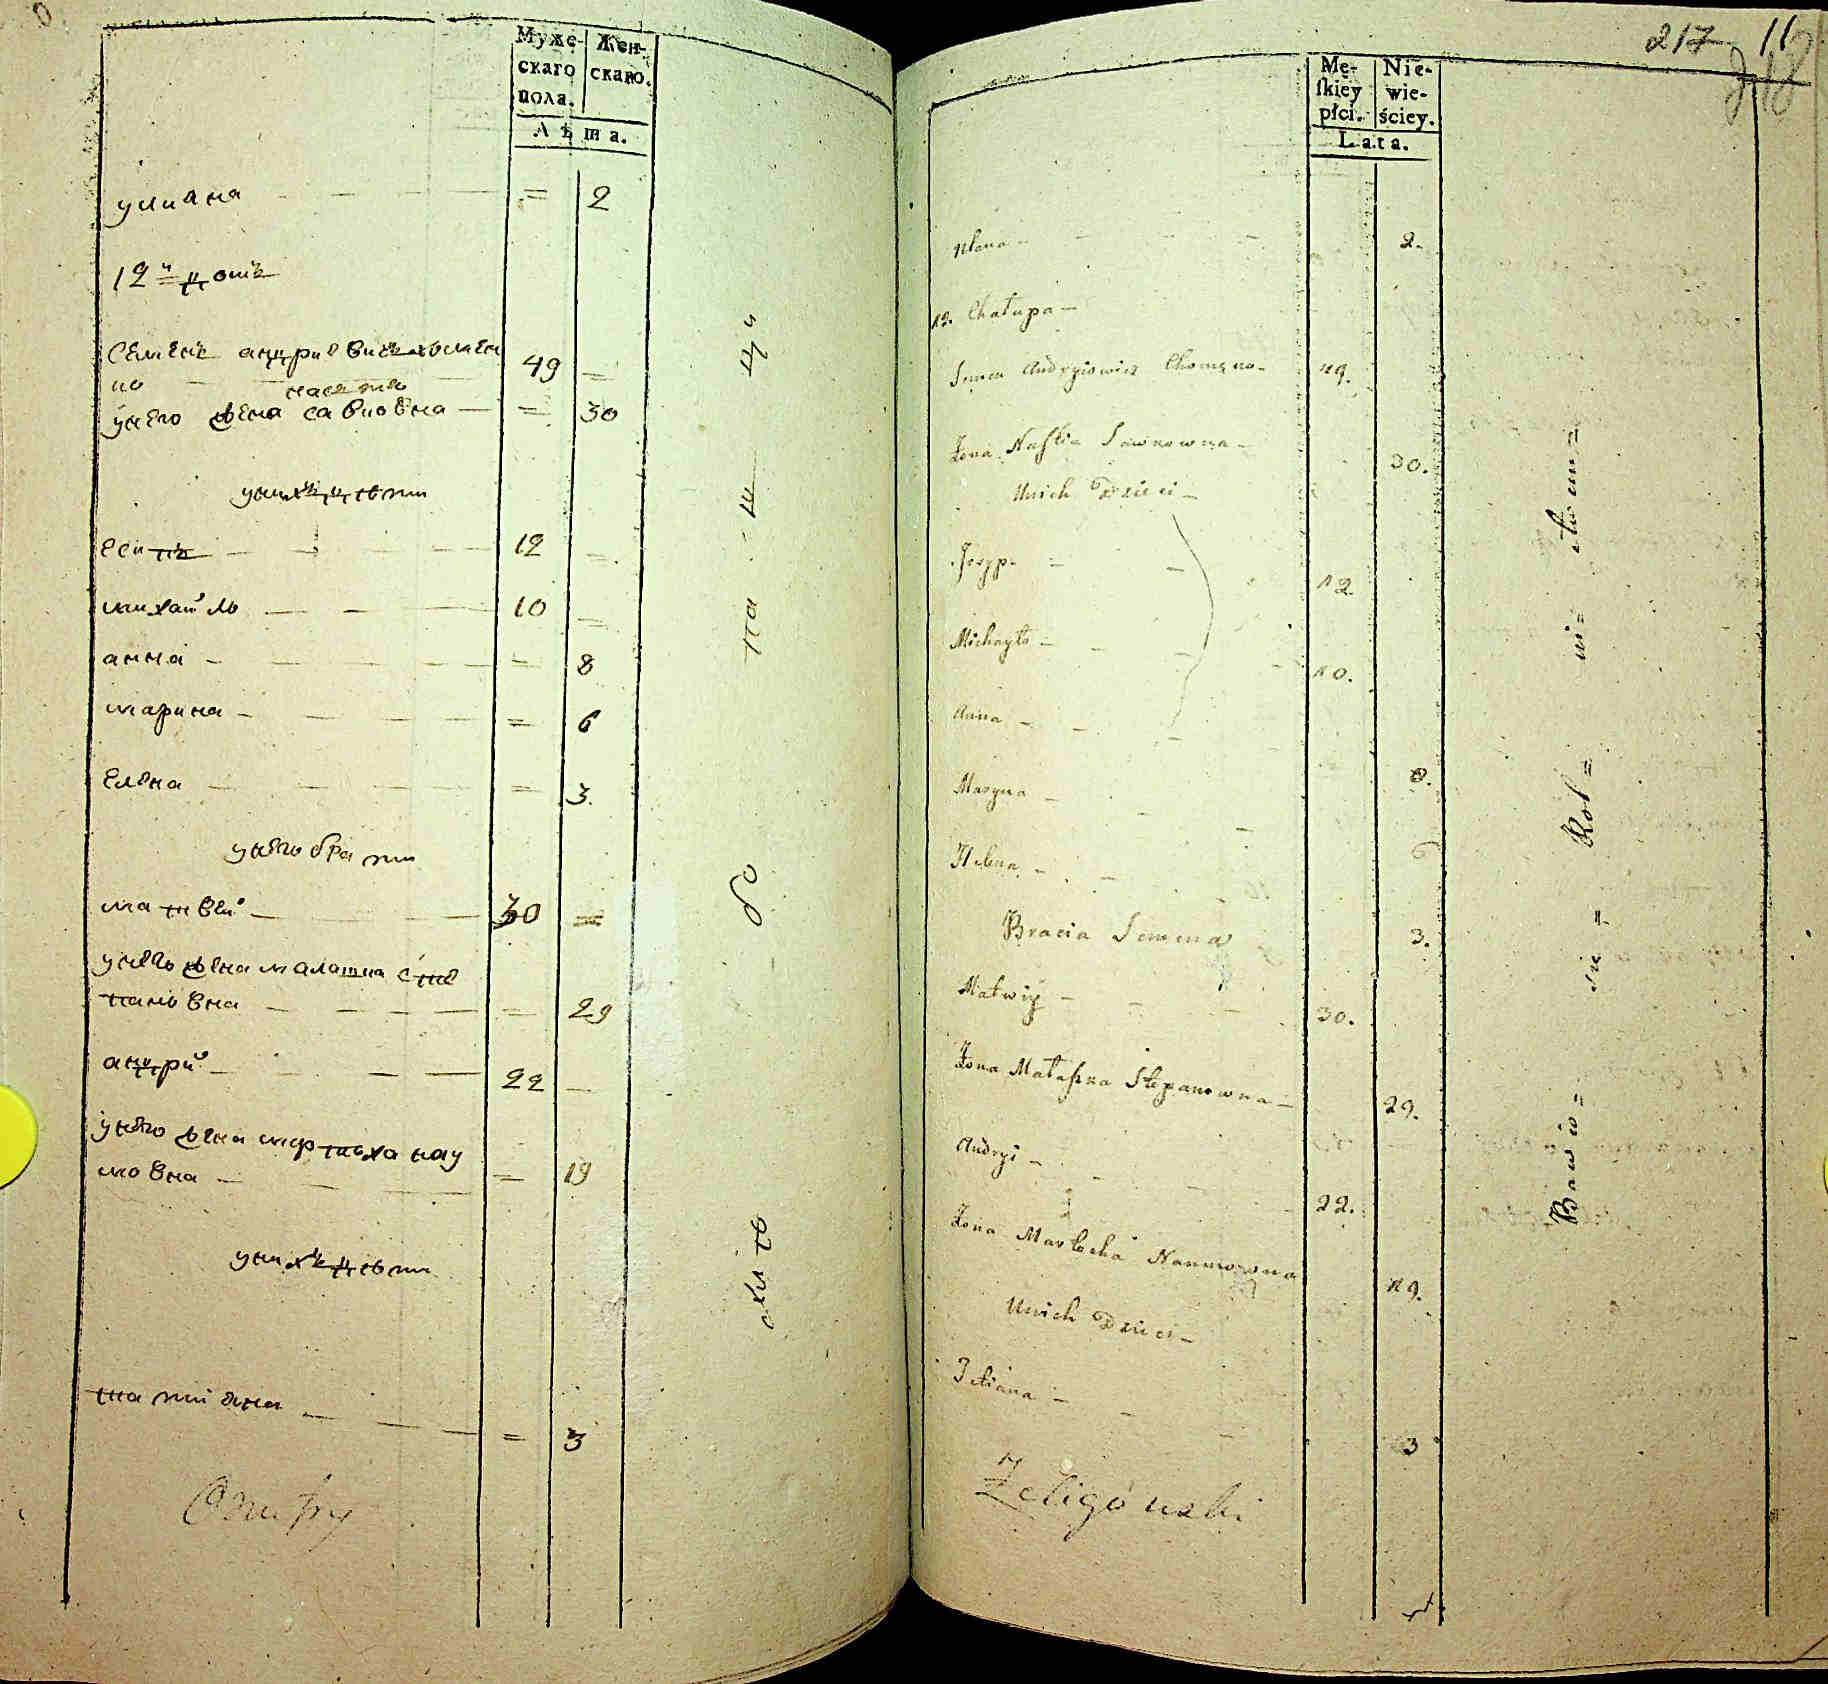 Муже-
скаго
пола.
Жен-
скаго.
Лѣта.
улиана — — — = 2
12й домъ
Семенъ андриевичъ хомен
ко — — 49 —
настя
унего жена савковна — = 30
унихъ дѣти
есипъ — — — 12 —
михайло — — — 10 —
анна — — — — 8
марина — — — = 6
елена — — — = 3.
унего брати
матвей — — 30 =
унего жена малашка сте
пановна — — — — 29
андрий — — — 22 —
унего жена мартоха нау
мовна — — — = 19
унихъ дѣти
татиана — — — = 3
217 11
Mę-
skiey
płci.
Nie-
wie-
ściey.
Lata.
Ulana — — — — 2.
12. Chałupa —
Semen Andryiowicz Chomęno — 49.
Żona Nastia Sawkowna — 30.
Unich Dzieci —
Jesyp — — 12
Michayło — — — 10.
Anna — — — 8.
Maryna — — — 6
Helena — — — 3.
Bracia Semena
Matwiy — — — 30.
Żona Małaszka Stepanowna — 29.
Andryi — — — 22.
Żona Martocha Naumowna 19.
Unich Dzieci —
Tetiana — — — 3
Żeligowski